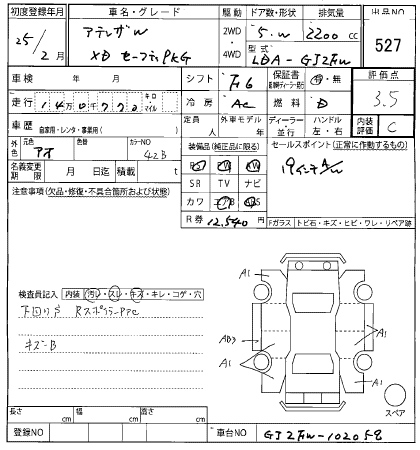 初度登録年月
車名・グレード
駆動
ドア数・形状
排気量
出品NO
25/2月
アテンザW
XD セーフティPKG
2WD
4WD
5・W
2200 cc
型式
LDA-GJ2FW
527
車検 年 月
シフト
F6
保証書
有・無
評価点
3.5
走行
キロ
マイル
冷房
AC
燃料
D
車歴
自家用・レンタ・事業用( )
定員
人
外車モデル
年
ディーラー・並行
ハンドル
左・右
内装評価
C
外色
元色
アオ
色替
カラーNO
42B
装備品(純正品に限る)
セールスポイント(正常に作動するもの)
PS AW PW
19インチAW
名義変更期限
月 日迄
積載
t
SR TV ナビ
注意事項(欠品・修復・不具合箇所および状態)
カワ
R券
12,540
円
Fガラス
トビ石・キズ・ヒビ・ワレ・リペア跡
検査員記入
内装
汚レ・スレ・キズ・キレ・コゲ・穴
下回りサビ
キズ-B
A1
A1
A1
A1
A1
スペア
長さ cm
幅 cm
高さ cm
登録NO
車台NO
GJ2FW-102058